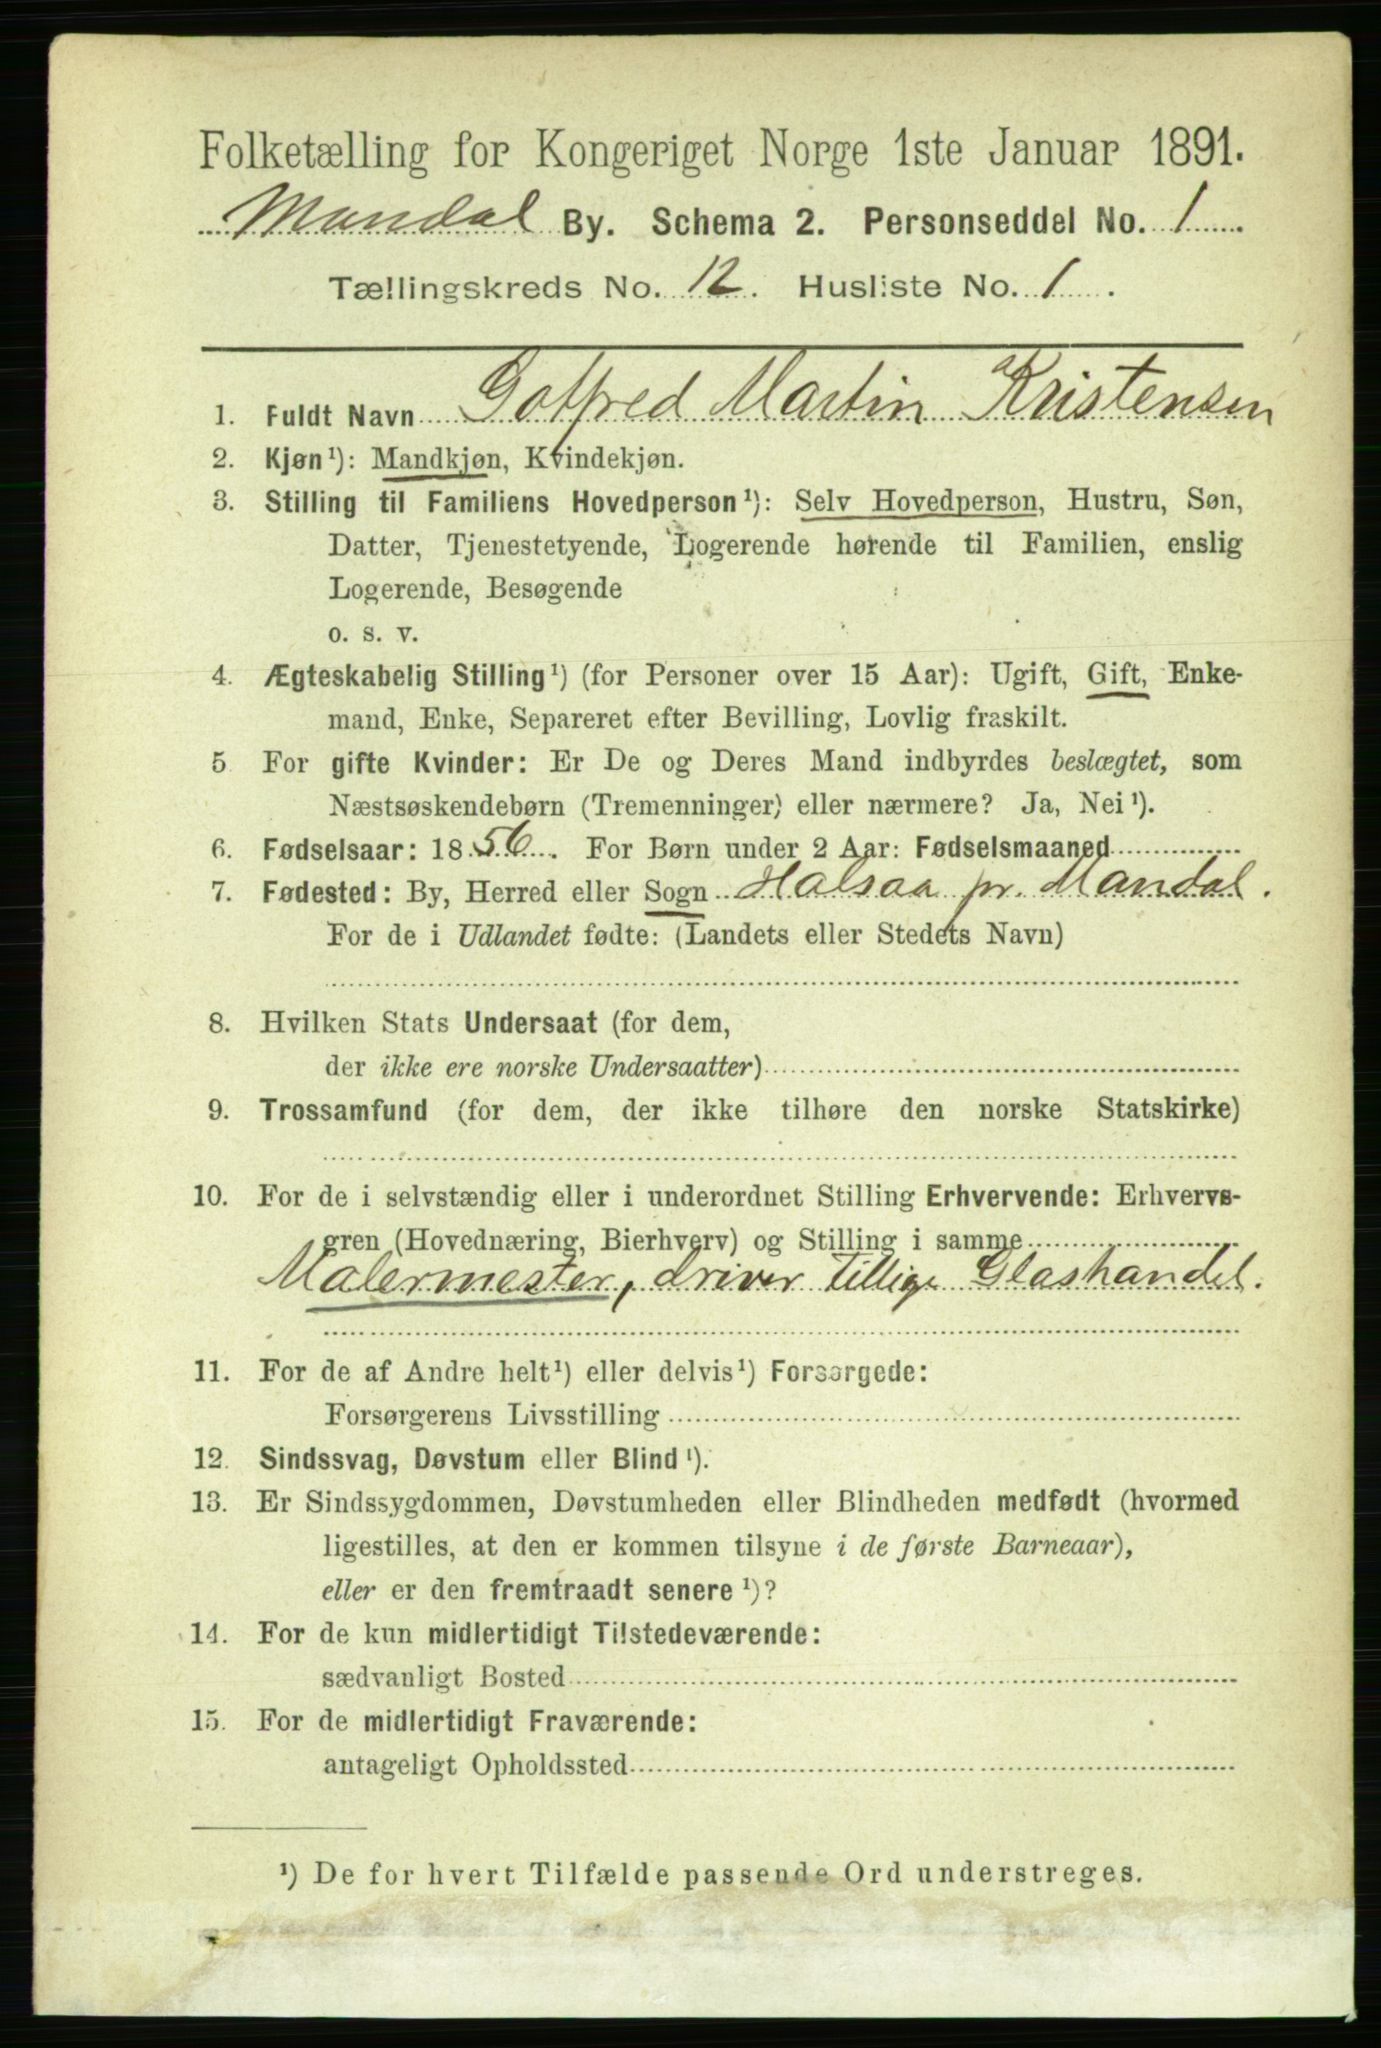 Folketælling for Kongeriget Norge 1ste Januar 1891.
Mandal By. Schema 2. Personseddel No. 1
Tællingskreds No. 12. Husliste No. 1.
1. Fuldt Navn Gotfred Martin Kristensen
2. Kjøn¹): Mandkjøn, Kvindekjøn.
3. Stilling til Familiens Hovedperson¹): Selv Hovedperson, Hustru, Søn,
Datter, Tjenestetyende, Logerende hørende til Familien, enslig
Logerende, Besøgende
o. s. v.
4. Ægteskabelig Stilling¹) (for Personer over 15 Aar): Ugift, Gift, Enke-
mand, Enke, Separeret efter Bevilling, Lovlig fraskilt.
5 For gifte Kvinder: Er De og Deres Mand indbyrdes beslægtet, som
Næstsøskendebørn (Tremenninger) eller nærmere? Ja, Nei¹).
6. Fødselsaar: 1856. For Børn under 2 Aar: Fødselsmaaned
7. Fødested: By, Herred eller Sogn Halsaa pr. Mandal.
For de i Udlandet fødte: (Landets eller Stedets Navn)
8. Hvilken Stats Undersaat (for dem,
der ikke ere norske Undersaatter)
9. Trossamfund (for dem, der ikke tilhøre den norske Statskirke)
10. For de i selvstændig eller i underordnet Stilling Erhvervende: Erhvervs-
gren (Hovednæring, Bierhverv) og Stilling i samme
Malermester, driver tillige Glashandel.
11. For de af Andre helt¹) eller delvis¹) Forsørgede:
Forsørgerens Livsstilling
12. Sindssvag, Døvstum eller Blind¹).
13. Er Sindssygdommen, Døvstumheden eller Blindheden medfødt (hvormed
ligestilles, at den er kommen tilsyne i de første Barneaar),
eller er den fremtraadt senere¹)?
14. For de kun midlertidigt Tilstedeværende:
sædvanligt Bosted
15. For de midlertidigt Fraværende:
antageligt Opholdssted
¹) De for hvert Tilfælde passende Ord understreges.